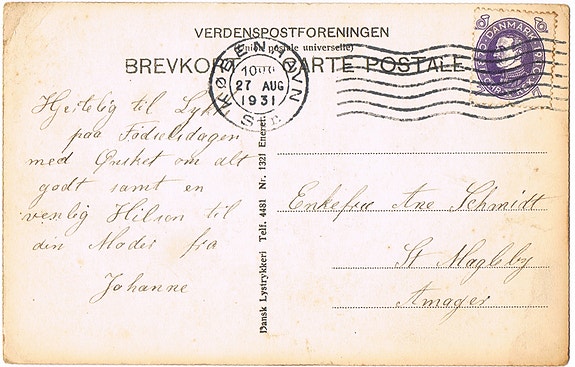 VERDENSPOSTFORENINGEN
(Union postale universelle)
BREVKORT CARTE POSTALE
KØBENHAVN
27 AUG
1931
DANMARK
Hjertelig til Lykke
paa Fødselsdagen
med Ønsket om alt
godt samt en
venlig Hilsen til
din Moder fra
Johanne
Dansk Lystrykkeri Telf. 4481 Nr. 1321 Eneret
Enkefru Ane Schmidt
St Magleby
Amager